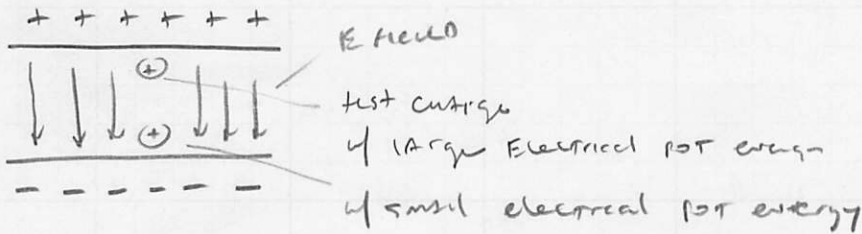 + + + + + +
E field
+
test charge
w/ large Electrical pot energy
+
- - - - - -
w/ small electrical pot energy